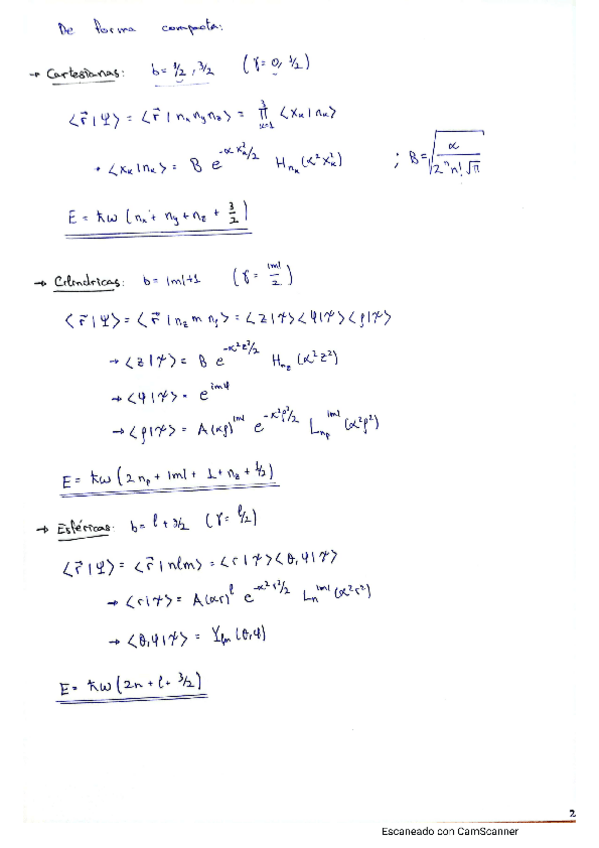 De forma compacta:
→ Cartesianas: b = 1/2, 3/2 (γ = 0, 1/2)
⟨r⃗|Ψ⟩ = ⟨r⃗|nₓ n_y n_z⟩ = ∏_{k=1}^{3} ⟨x_k|n_k⟩
· ⟨x_k|n_k⟩ = B e^{-α x_k²/2} H_{n_k}(α² x_k²) ; B = √(α / (2ⁿ n! √π))
E = ħω (nₓ + n_y + n_z + 3/2)
→ Cilíndricas: b = |m|+1 (γ = |m|/2)
⟨r⃗|Ψ⟩ = ⟨r⃗|n_z m n_ρ⟩ = ⟨z|Ψ⟩⟨φ|Ψ⟩⟨ρ|Ψ⟩
→ ⟨z|Ψ⟩ = B e^{-α² z²/2} H_{n_z}(α² z²)
→ ⟨φ|Ψ⟩ = e^{imφ}
→ ⟨ρ|Ψ⟩ = A(αρ)^{|m|} e^{-α² ρ²/2} L_{n_ρ}^{|m|}(α² ρ²)
E = ħω (2n_ρ + |m| + 1 + n_z + 1/2)
→ Esféricas: b = l + 3/2 (γ = l/2)
⟨r⃗|Ψ⟩ = ⟨r⃗|nlm⟩ = ⟨r|Ψ⟩⟨θ,φ|Ψ⟩
→ ⟨r|Ψ⟩ = A(αr)^l e^{-α² r²/2} L_n^{|m|}(α² r²)
→ ⟨θ,φ|Ψ⟩ = Y_{lm}(θ,φ)
E = ħω (2n + l + 3/2)
2
Escaneado con CamScanner